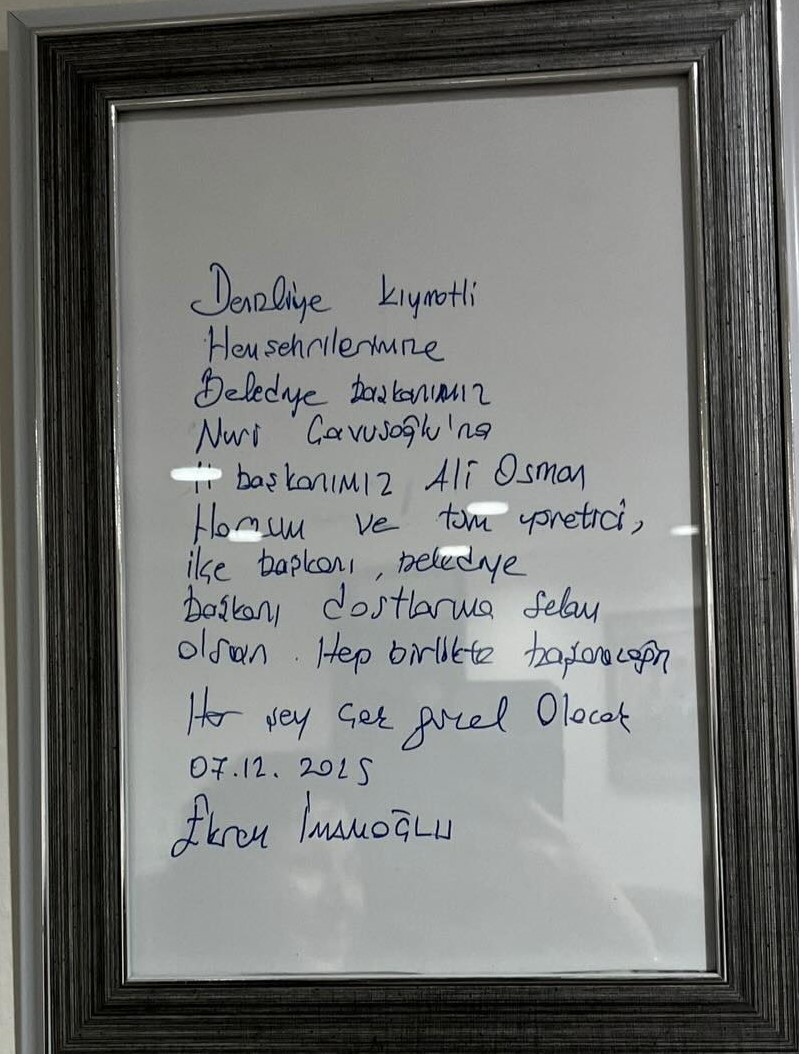 Denizliye kıymetli
Hemşehrilerimize
Belediye başkanımız
Nuri Çavuşoğlu'na
İl başkanımız Ali Osman
Horzum ve tüm yönetici,
ilçe başkanı, belediye
başkanı dostlarıma selam
olsun. Hep birlikte başaracağız
Her şey çok güzel Olacak
07.12.2025
Ekrem İMAMOĞLU